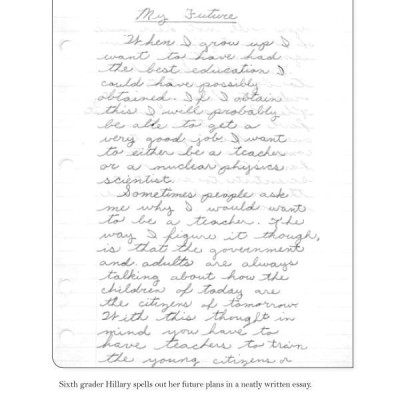 My Future
When I grow up I
want to have had
the best education I
could have possibly
obtained. If I obtain
this I will probably
be able to get a
very good job. I want
to either be a teacher
or a nuclear physics
scientist.
Sometimes people ask
me why I would want
to be a teacher. The
way I figure it though,
is that the government
and adults are always
talking about how the
children of today are
the citizens of tomorrow
With this thought in
mind you have to
have teachers to train
the young citizens or
Sixth grader Hillary spells out her future plans in a neatly written essay.